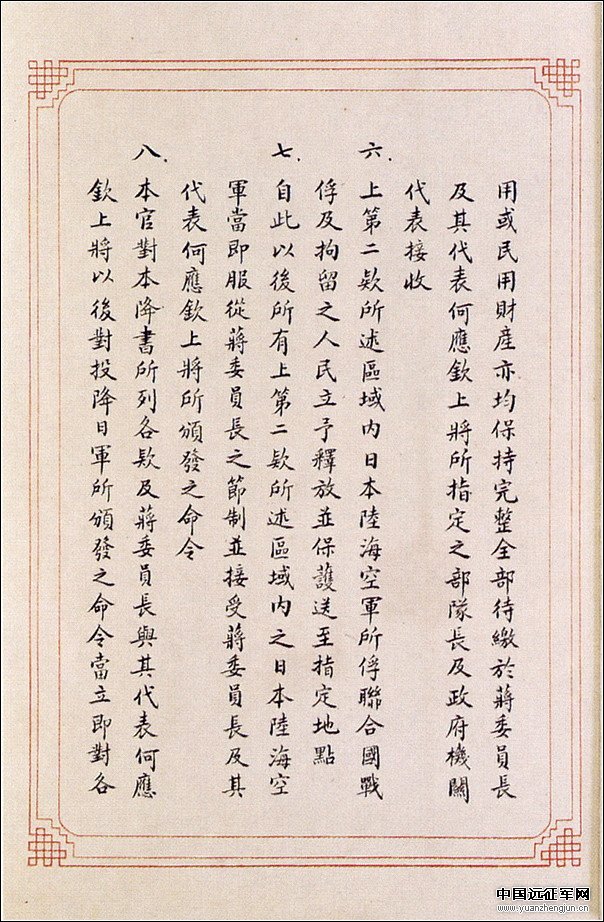 用或民用財產亦均保持完整全部待繳於蔣委員長
及其代表何應欽上將所指定之部隊長及政府機關
代表接收
六．上第二欵所述區域內日本陸海空軍所俘聯合國戰
俘及拘留之人民立予釋放並保護送至指定地點
七．自此以後所有上第二欵所述區域內之日本陸海空
軍當即服從蔣委員長之節制並接受蔣委員長及其
代表何應欽上將所頒發之命令
八．本官對本降書所列各欵及蔣委員長與其代表何應
欽上將以後對投降日軍所頒發之命令當立即對各
中国远征军网
www.yuanzhengjun.cn